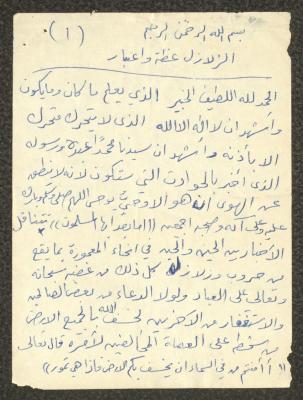 بسم الله الرحمن الرحيم
(١)
الزلازل عظة واعتبار
الحمد لله اللطيف الخبير الذي يعلم ما كان وما يكون
وأشهد ان لا اله الا الله الذي لا يتحرك متحرك
الا بأذنه وأشهد ان سيدنا محمداً عبده ورسوله
الذى أخبر بالحوادث التي ستكون لأنه لا ينطق
عن الهوى ان هو الا وحي يوحى اللهم صل وسلم وبارك
عليه وعلى آله وصحبه اجمعين ((اما بعد أيها المسلمون)) تتناقل
الأخبار بين الحين والحين في انحاء المعمورة بما يقع
من حروب وزلازل كل ذلك من غضبه سبحانه
وتعالى على العباد ولولا الدعاء من بعض الصالحين
والاستغفار من الآخرين لخسف الله بالجميع الارض
من سخطه على العصاة المخالفين لأمره قال تعالى
(( أأمنتم من في السماء ان يخسف بكم الارض فاذا هي تمور ))